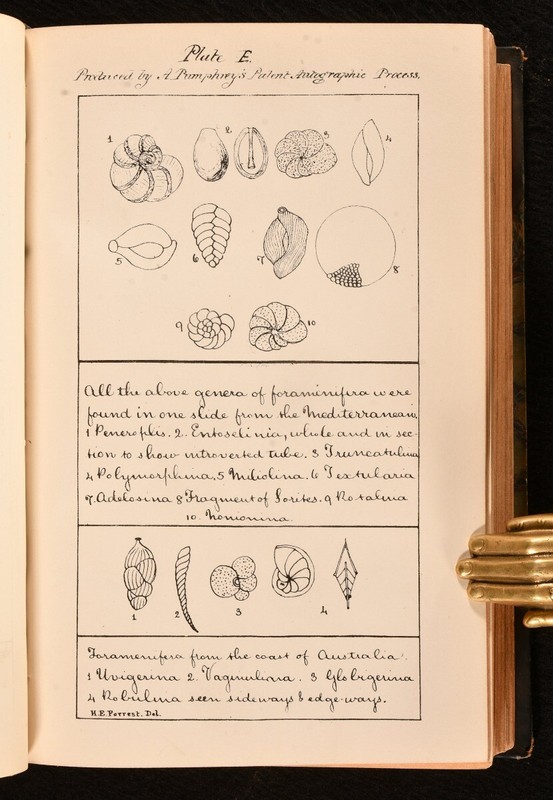 Plate E.
Produced by A Pumphrey's Patent Autographic Process.
1 2. 3 4
5 6 7 8
9 10
All the above genera of foraminifera were
found in one slide from the Mediterranean.
1 Peneroplis. 2. Entoselinia, whole and in sec-
tion to show introverted tube. 3 Truncatulina
4 Polymorphina, 5 Miliolina. 6 Textularia
7. Adelosina 8 Fragment of Sorites. 9 Rotalina
10. Nonionina.
1 2 3 4
Foramenifera from the coast of Australia.
1 Uvigerina 2. Vaginulina. 3 Globigerina
4 Robulina seen sideways & edge-ways.
H.E. Forrest. Del.